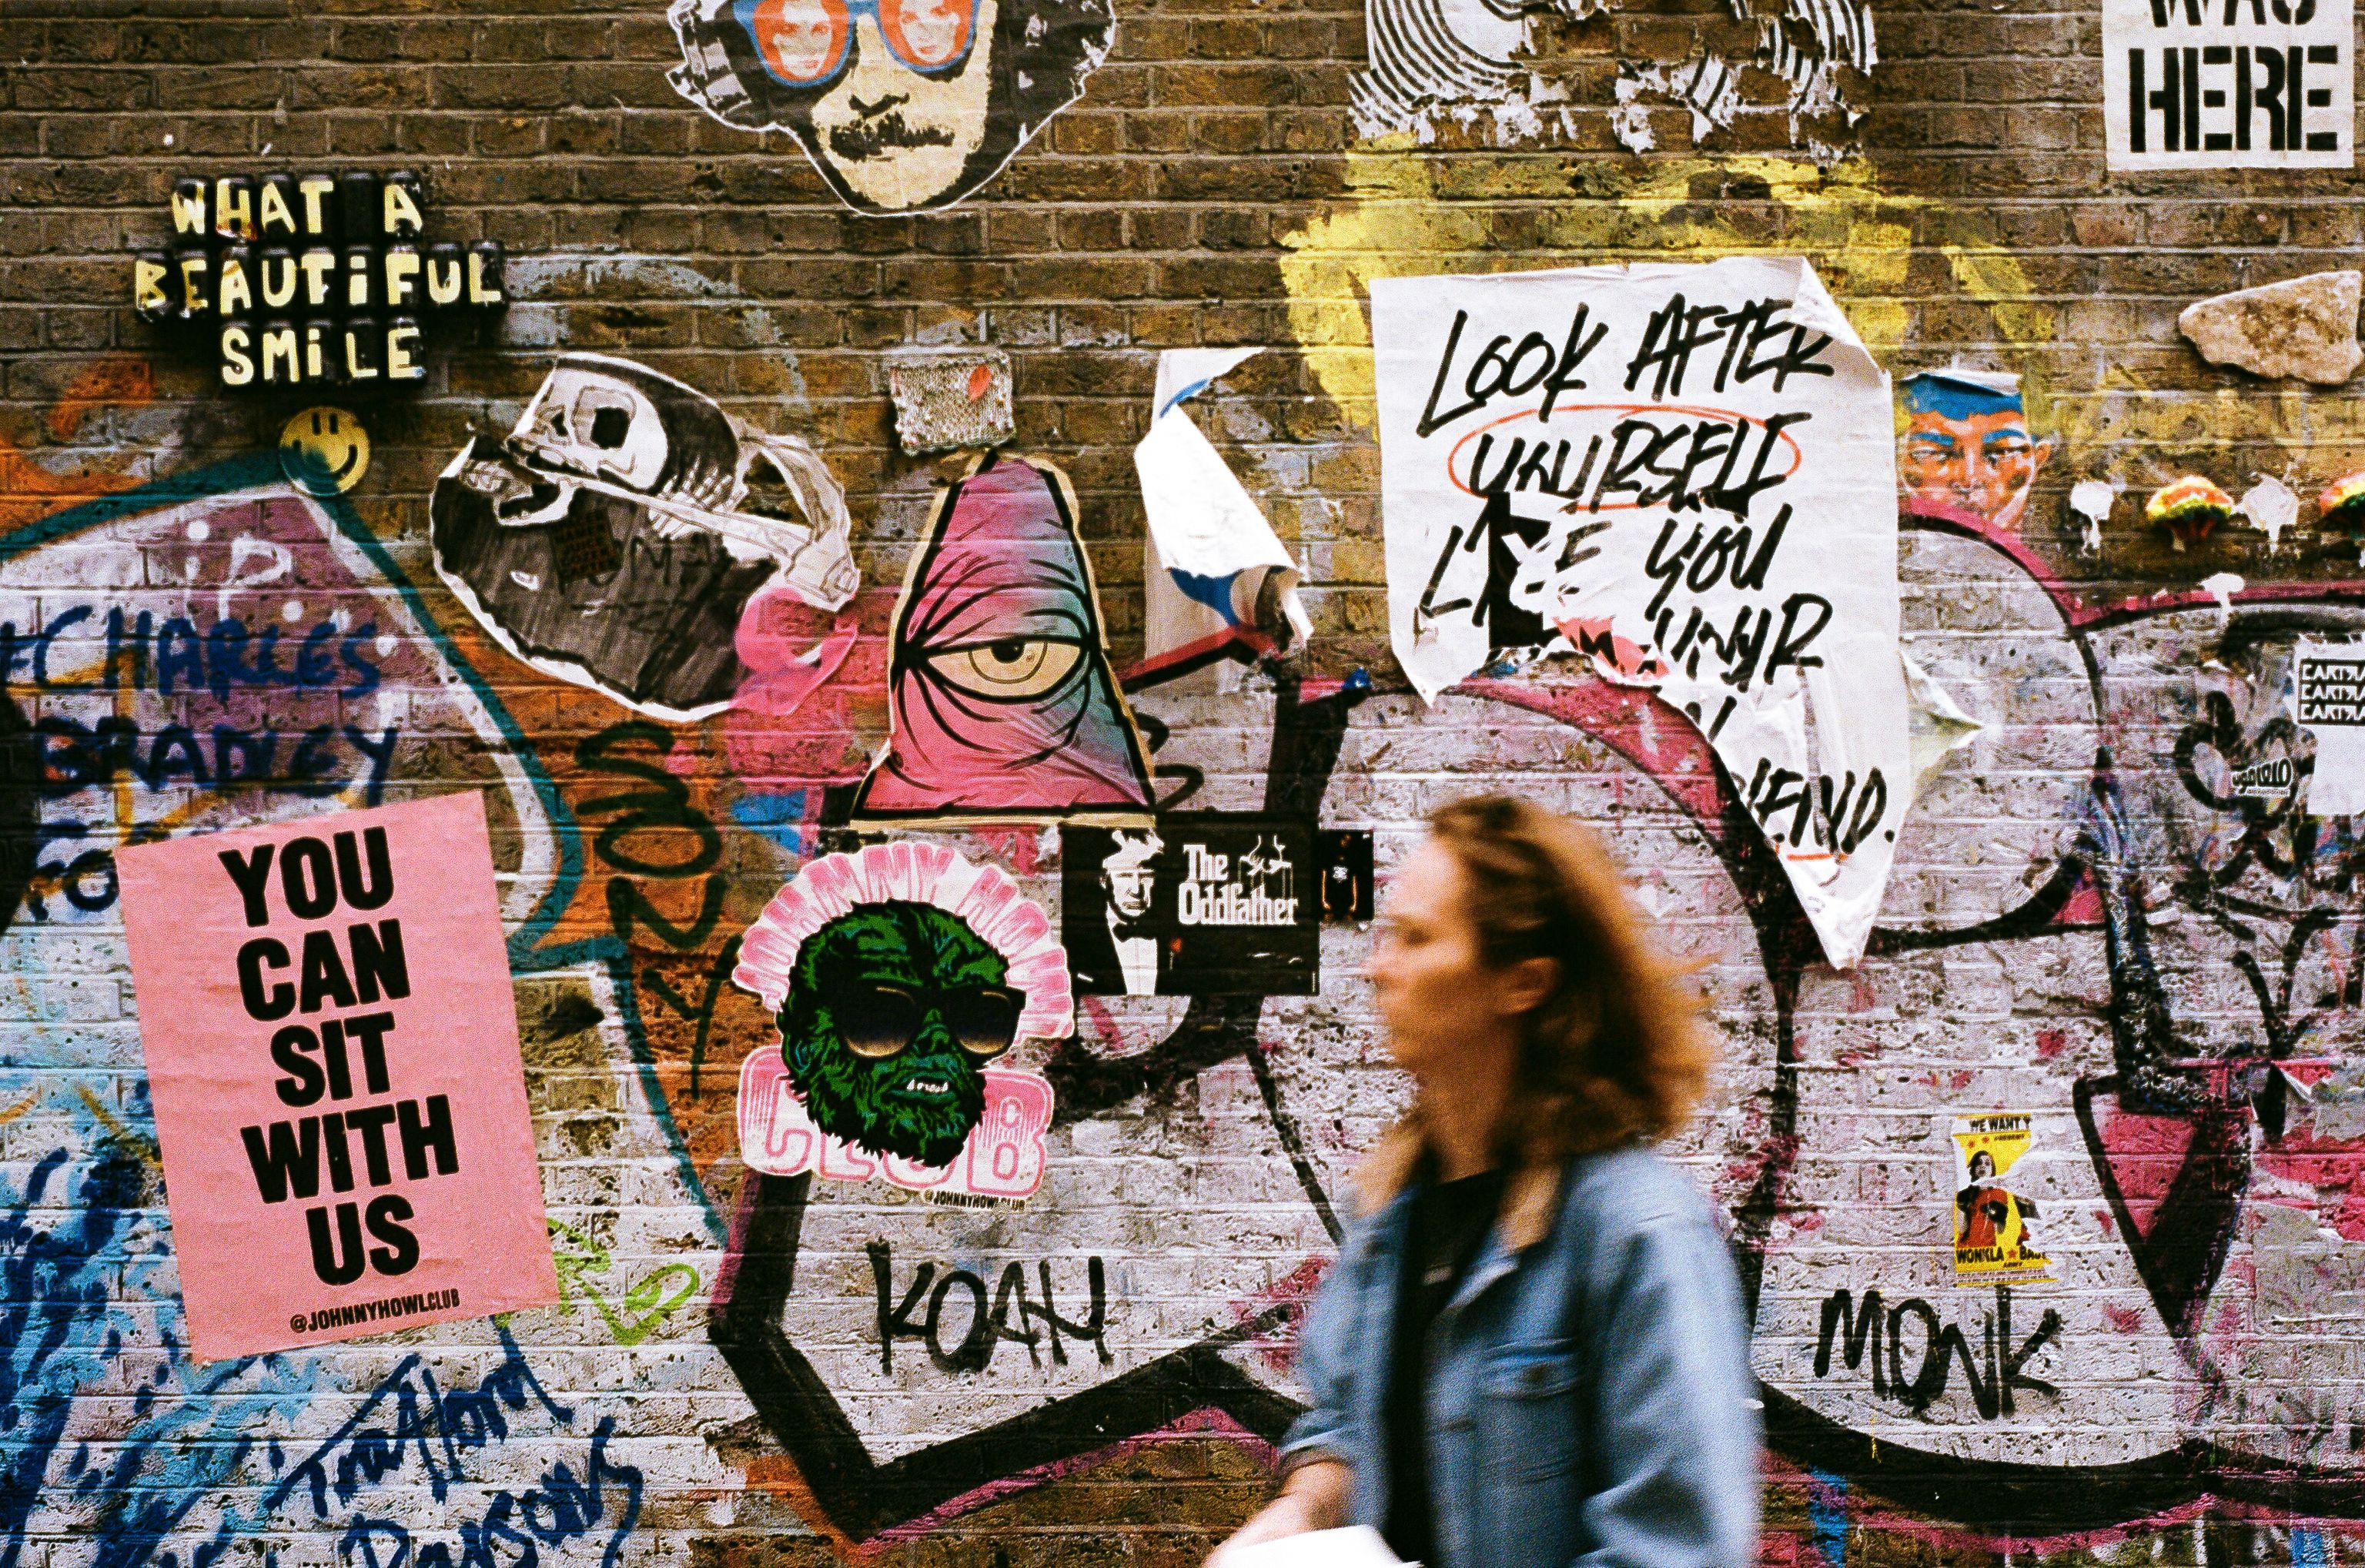 WAS
HERE
WHAT A
BEAUTiFUL
SMiLE
LOOK AFTER
YOURSELF
LIKE YOU
YOUR
CHARLES
BRADLEY
YOU
CAN
SIT
WITH
US
@JOHNNYHOWLCLUB
JOHNNY HOWL
CLUB
@JOHNNYHOWLCLUB
The
Oddfather
KOAH
WE WANT Y
WONKLA
MONK
Trafford
Parsons